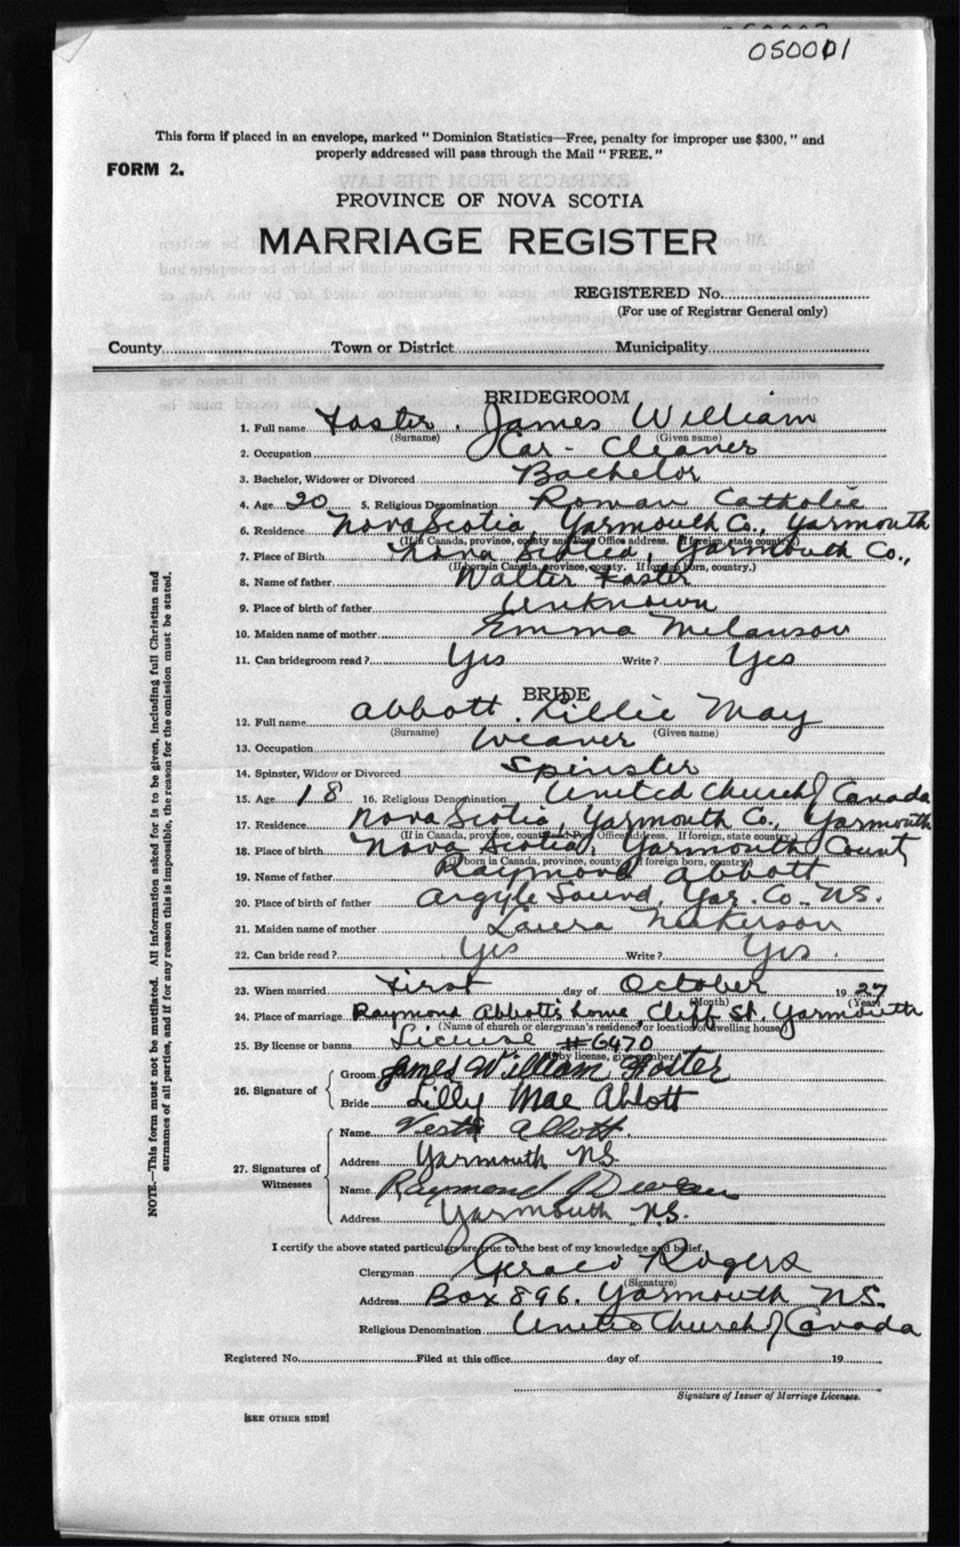 050001
This form if placed in an envelope, marked "Dominion Statistics—Free, penalty for improper use $300," and
properly addressed will pass through the Mail "FREE."
FORM 2.
PROVINCE OF NOVA SCOTIA
MARRIAGE REGISTER
REGISTERED No.
(For use of Registrar General only)
County Town or District Municipality
BRIDEGROOM
1. Full name Foster, James William
(Surname) (Given name)
2. Occupation Car-Cleaner
3. Bachelor, Widower or Divorced Bachelor
4. Age 20 5. Religious Denomination Roman Catholic
6. Residence Nova Scotia, Yarmouth Co., Yarmouth
(If in Canada, province, county and Post Office address. If foreign, state country.)
7. Place of Birth Nova Scotia, Yarmouth Co.,
(If born in Canada, province, county. If foreign born, country.)
8. Name of father Walter Foster
9. Place of birth of father Unknown
10. Maiden name of mother Emma Melanson
11. Can bridegroom read? Yes Write? Yes
BRIDE
12. Full name Abbott, Lillie May
(Surname) (Given name)
13. Occupation Weaver
14. Spinster, Widow or Divorced Spinster
15. Age 18 16. Religious Denomination United Church of Canada
17. Residence Nova Scotia, Yarmouth Co., Yarmouth
(If in Canada, province, county and Post Office address. If foreign, state country.)
18. Place of birth Nova Scotia, Yarmouth County
(If born in Canada, province, county. If foreign born, country)
19. Name of father Raymond Abbott
20. Place of birth of father Argyle Sound, Yar. Co. N.S.
21. Maiden name of mother Laura Nickerson
22. Can bride read? Yes Write? Yes.
23. When married First day of October 1927
(Month) (Year)
24. Place of marriage Raymond Abbott's home, Cliff St. Yarmouth
(Name of church or clergyman's residence or location of dwelling house)
25. By license or banns License #6470
(If by license, give number)
26. Signature of
Groom James William Foster
Bride Lilly Mae Abbott
27. Signatures of Witnesses
Name Vesta Abbott.
Address Yarmouth N.S.
Name Raymond
Address Yarmouth N.S.
I certify the above stated particulars are true to the best of my knowledge and belief.
Clergyman Gerald Rogers
(Signature)
Address Box 896, Yarmouth N.S.
Religious Denomination United Church of Canada
Registered No. Filed at this office day of 19
Signature of Issuer of Marriage Licenses.
[SEE OTHER SIDE]
NOTE.—This form must not be mutilated. All information asked for is to be given, including full Christian and
surnames of all parties, and if for any reason this is impossible, the reason for the omission must be stated.